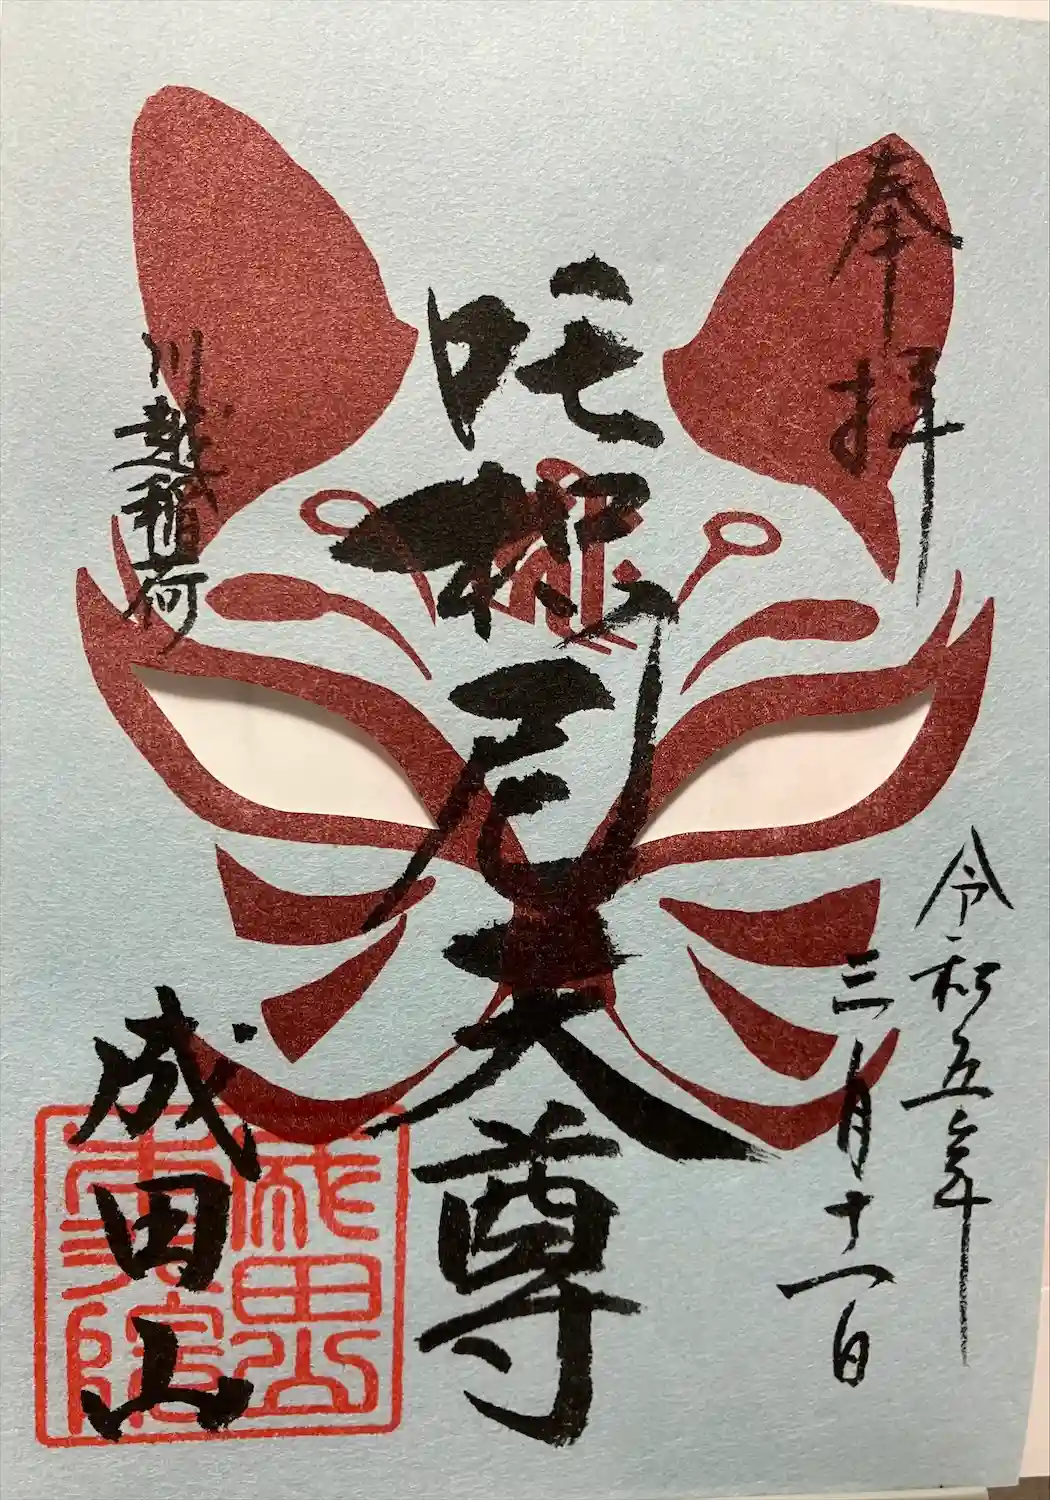 奉拝
令和五年
三月十一日
吒枳尼天尊
川越稲荷
成田山
成田山